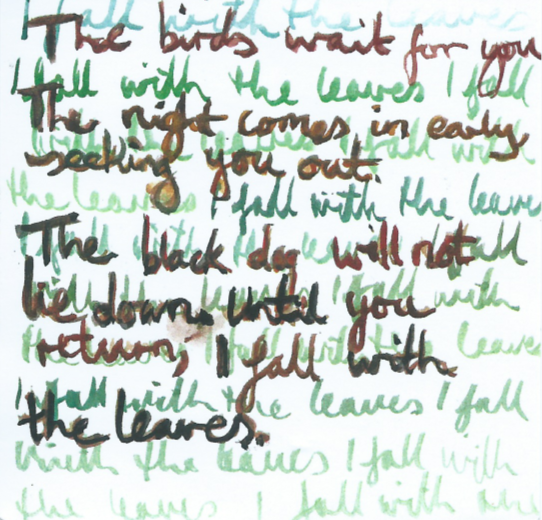 I fall with the leaves
The birds wait for you
I fall with the leaves I fall
The night comes in early,
with the leaves I fall with
seeking you out.
the leaves I fall with the leave
The black dog will not
I fall with the leaves I fall
lie down. Until you
with the leaves I fall with
return, I fall with
the leaves I fall with the leave
I fall with the leaves I fall
the leaves.
with the leaves I fall with
the leaves I fall with the